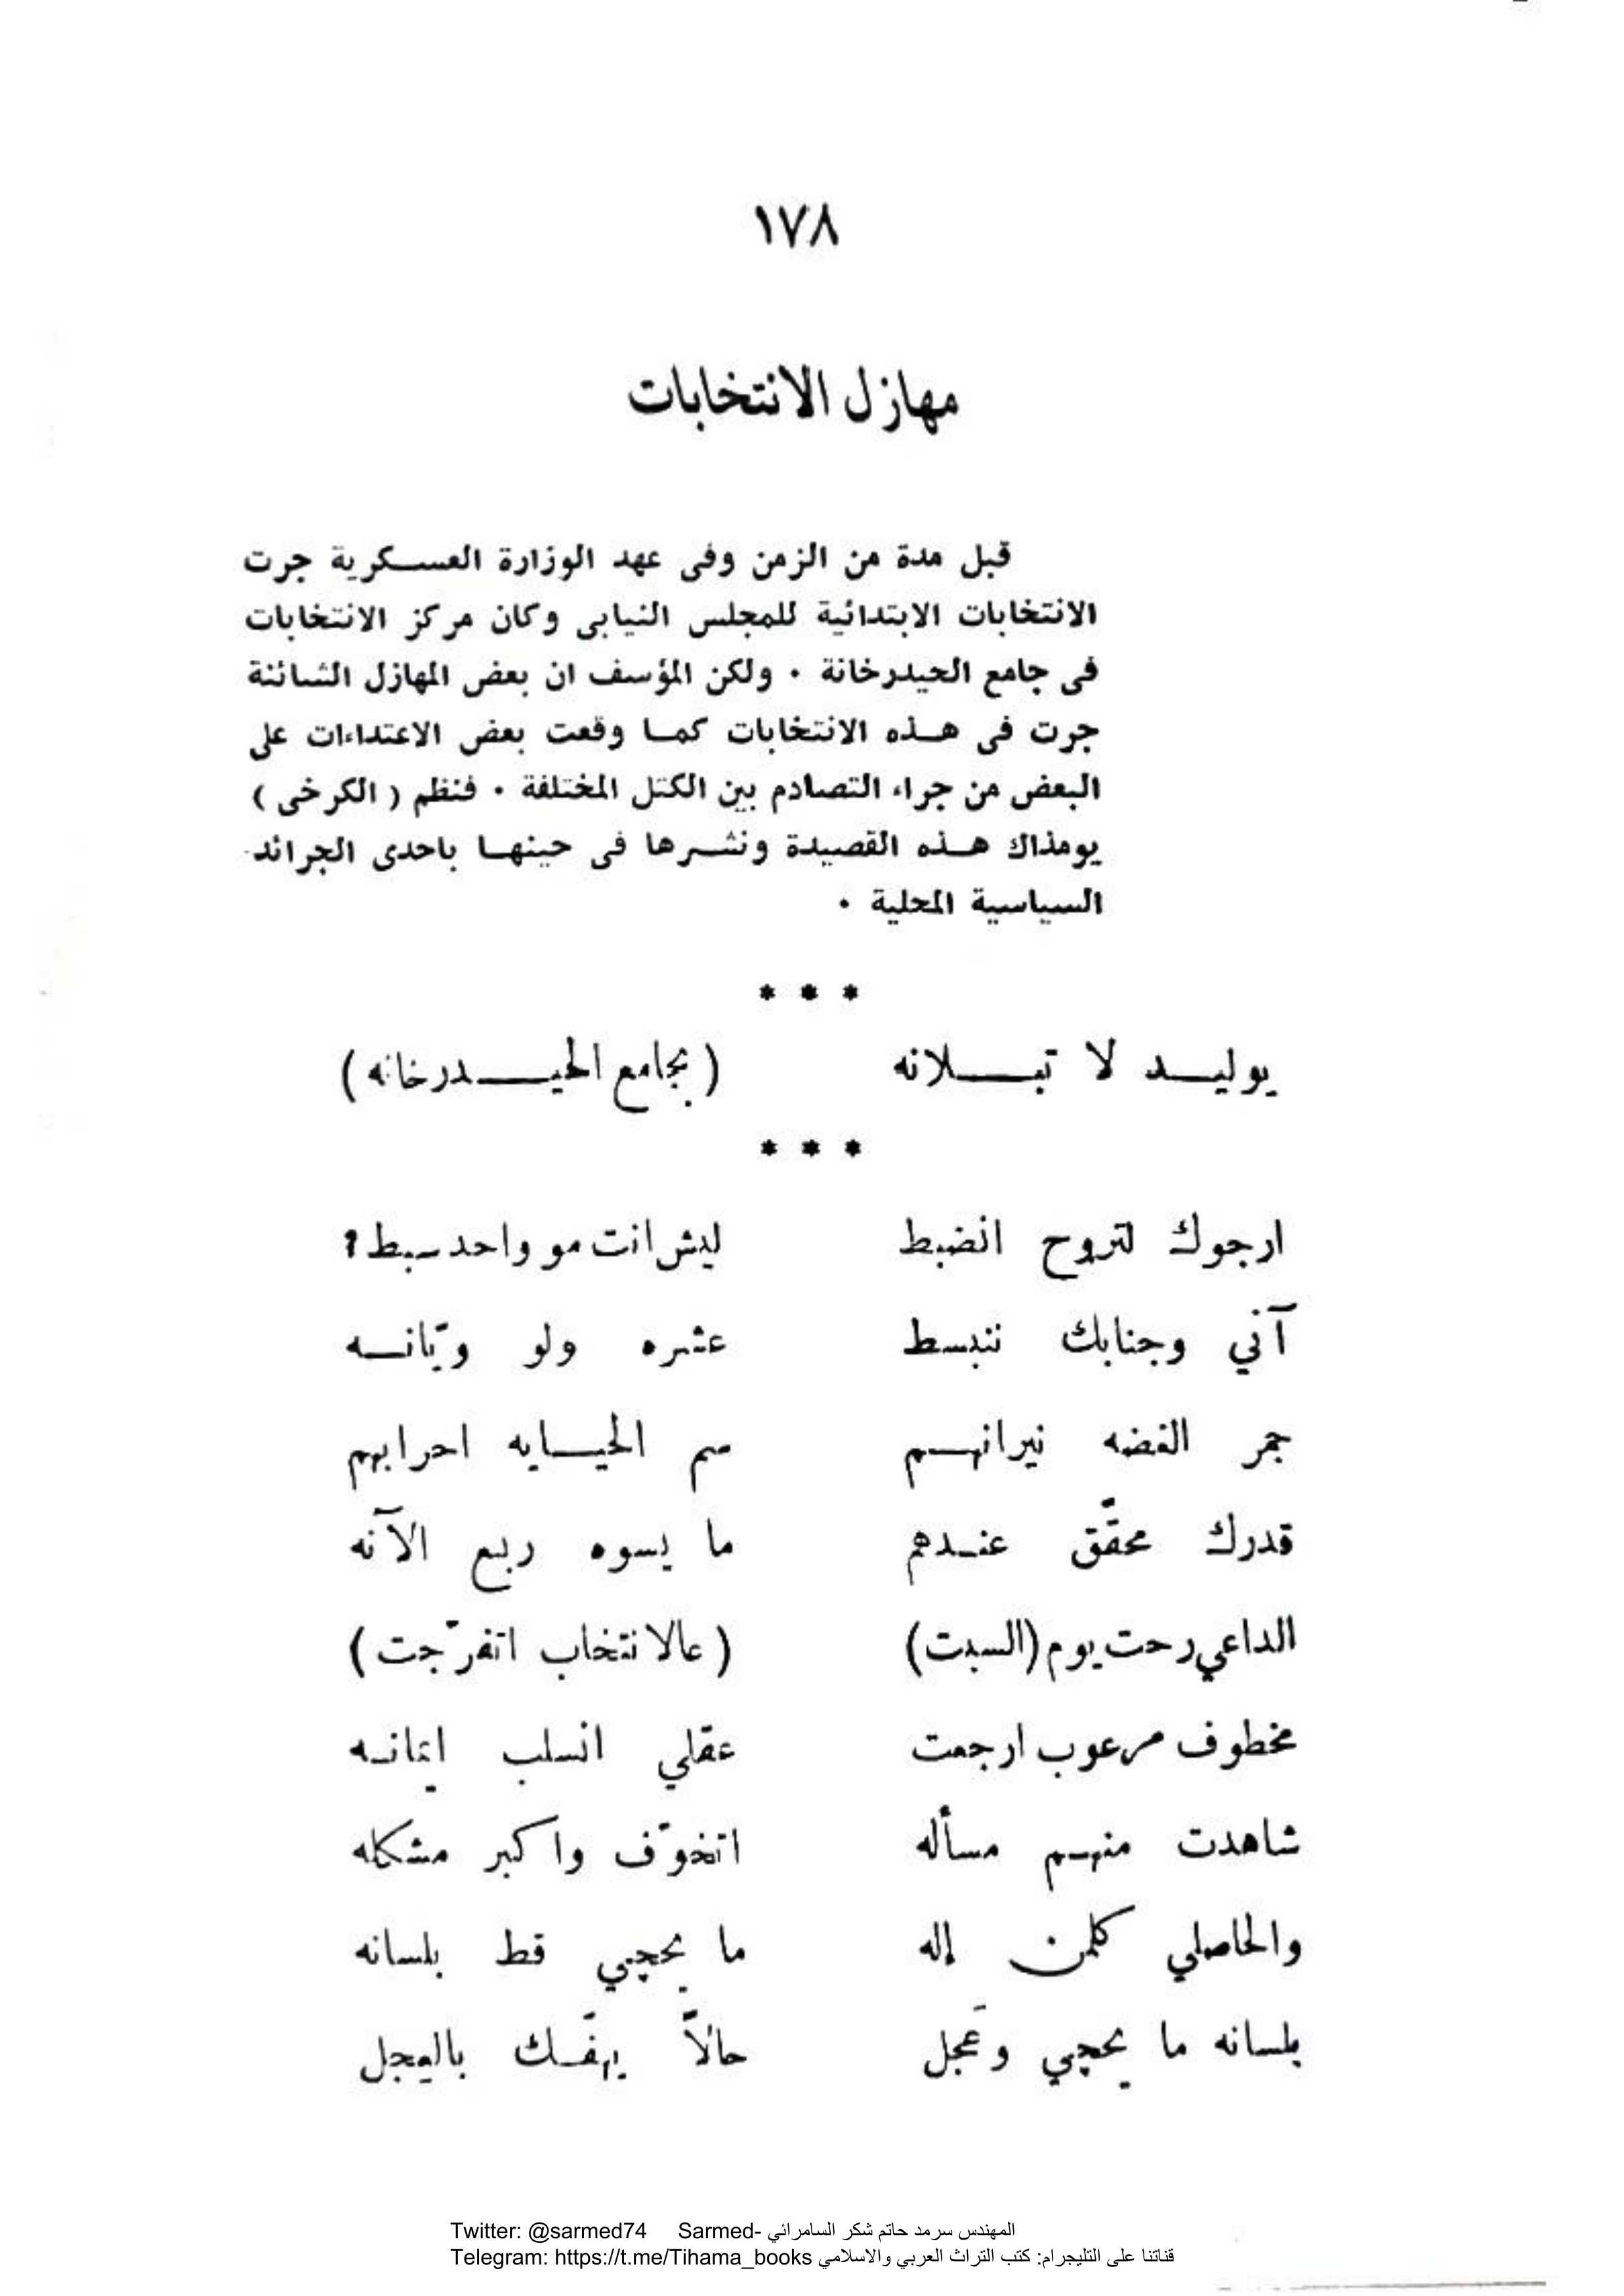 ١٧٨
مهازل الانتخابات
قبل مدة من الزمن وفى عهد الوزارة العسكرية جرت
الانتخابات الابتدائية للمجلس النيابى وكان مركز الانتخابات
فى جامع الحيدرخانة . ولكن المؤسف ان بعض المهازل الشائنة
جرت فى هذه الانتخابات كما وقعت بعض الاعتداءات على
البعض من جراء التصادم بين الكتل المختلفة . فنظم ( الكرخى )
يومذاك هذه القصيدة ونشرها فى حينها باحدى الجرائد
السياسية المحلية .
* * *
يوليد لا تبلانه ( بجامع الحيدرخانه )
* * *
ارجوك لتروح انضبط ليش انت مو واحد سبط ؟
آني وجنابك ننبسط عشره ولو ويّانه
جمر الغضه نيرانهم سم الحيايه احرابهم
قدرك محقّق عندهم ما يسوه ربع الآنه
الداعي رحت يوم (السبت) ( عالانتخاب اتفرّجت )
مخطوف مرعوب ارجعت عقلي انسلب ايمانه
شاهدت منهم مسأله اتخوّف واكبر مشكله
والحاصلي كلمن إله ما يحچي قط بلسانه
بلسانه ما يحچي وعَجل حالاً يهفّك بالعجل
Twitter: @sarmed74 Sarmed- المهندس سرمد حاتم شكر السامرائي
Telegram: https://t.me/Tihama_books قناتنا على التليجرام: كتب التراث العربي والاسلامي